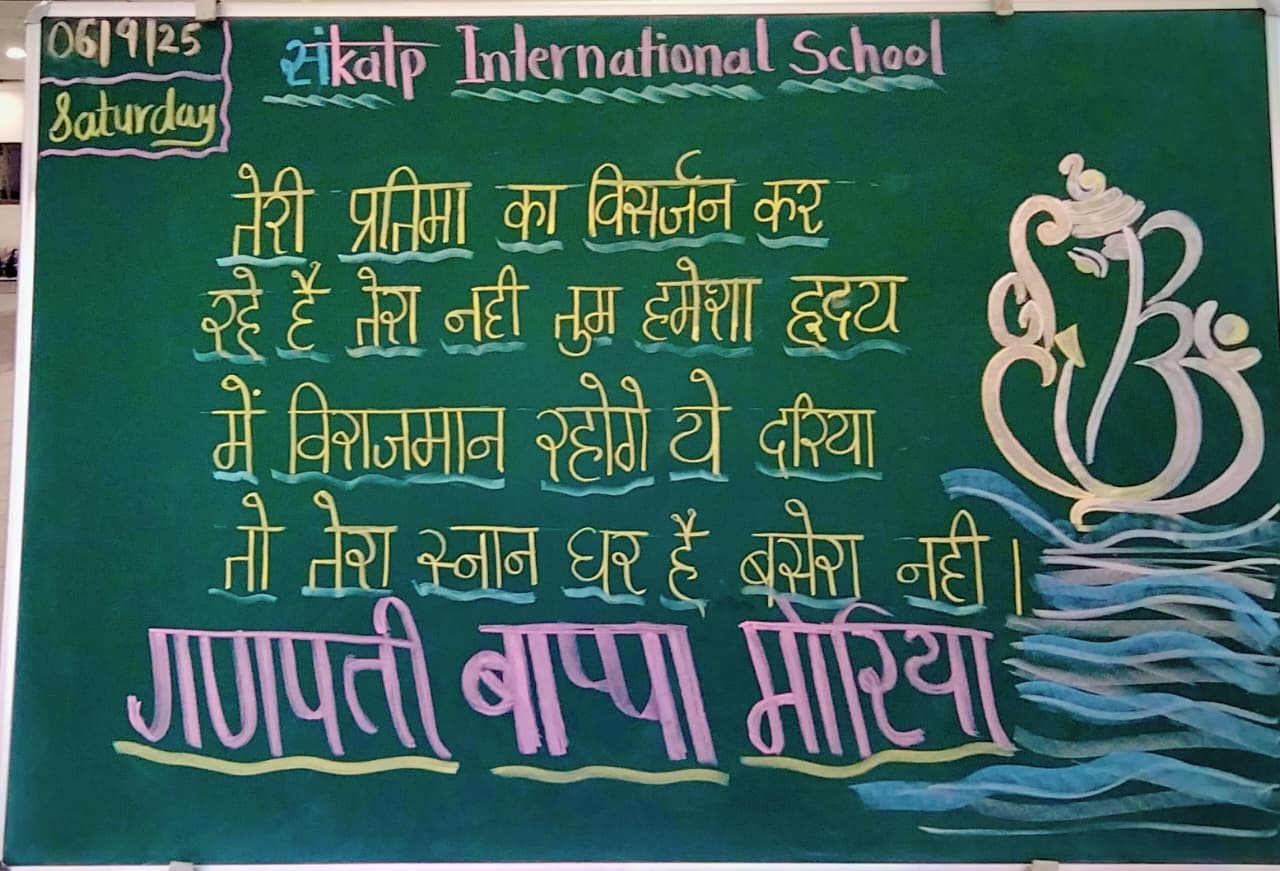 06/9/25
Saturday
संkalp International School
तेरी प्रतिमा का विसर्जन कर
रहे है तेरा नही तुम हमेशा हृदय
में विराजमान रहोगे ये दरिया
तो तेरा स्नान घर है बसेरा नही ।
गणपती बाप्पा मोरिया